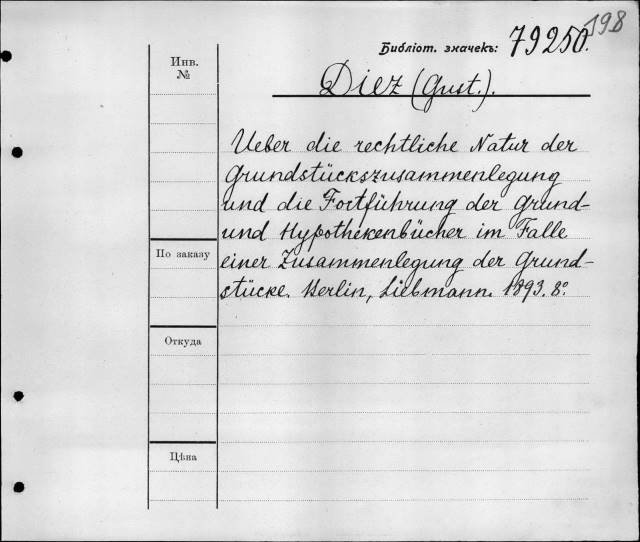 198
Библіот. значекъ: 79250.
Diez (Gust.).
Инв.
№
Ueber die rechtliche Natur der
Grundstückszusammenlegung
und die Fortführung der Grund-
und Hypothekenbücher im Falle
einer Zusammenlegung der Grund-
stücke. Berlin, Liebmann. 1893. 8º.
По заказу
Откуда
Цѣна